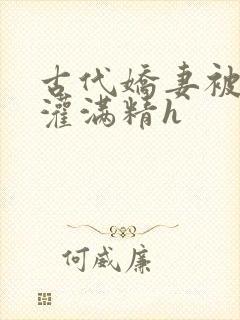 古代嬌妻被
灌滿精h
何威廉